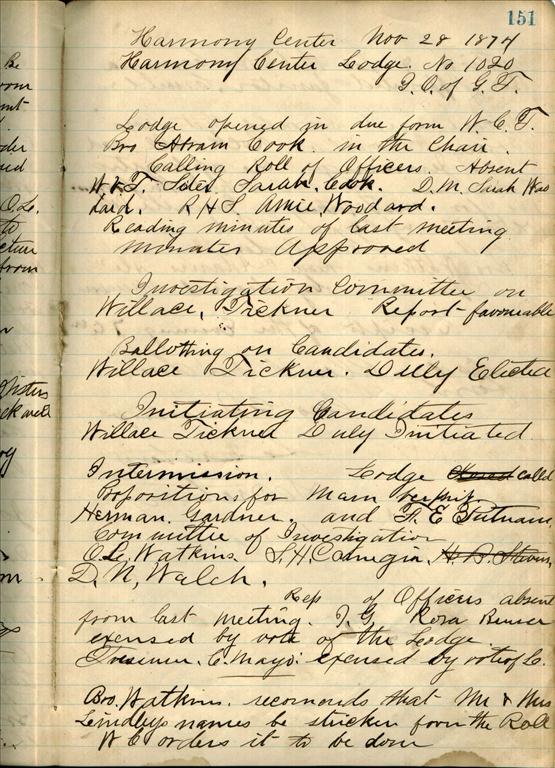 151
Harmony Center Nov 28 1874
Harmony Center Lodge. No 1020
I. O. of G. T.
Lodge opened in due form W. C. T.
Bro Abram Cook in the Chair.
Calling Roll of Officers Absent
Sister Sarah Cook. D. M. Sarah
R H S Amie Woodard.
Reading minutes of last meeting
minutes Approved
Investigation Committee on
Willace, Tickner Report favourable
Ballotting on Candidates.
Willace Tickner. Dully Elected
Initiating Candidates
Willace Tickner Duly Initiated
Intermission. Lodge closed called
Propositions for Mam
Herman Gardner. and F. E Putnam
Committee of Investigation
O L, Watkins. S. H. Carnegia, H. D. Stevens,
D. N, Walch.
Rep of Officers absent
from last meeting. I. G. Rosa
exensed by vote of the Lodge
C. Mayo: exensed by vote of L.
Bro. Watkins. recomends that Mr & Mrs
Lindleys names be stricken from the Roll
W C orders it to be done